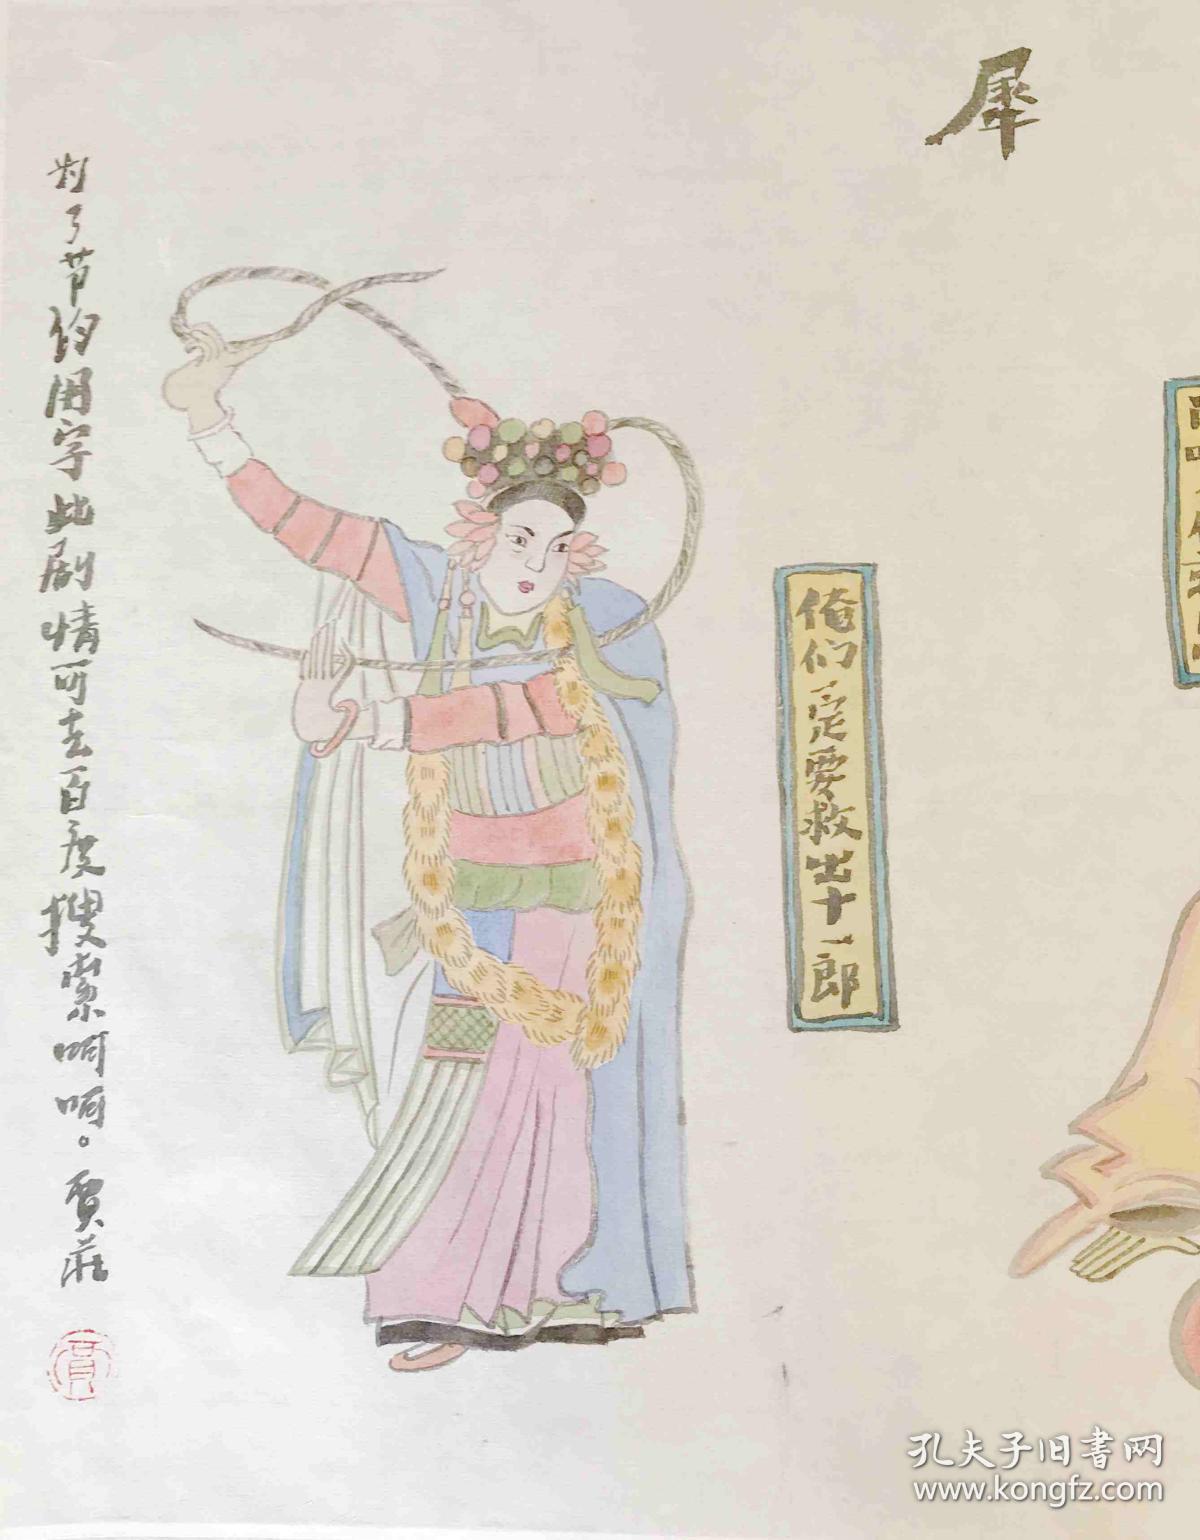 犀
俺们一定要救出十一郎
为了节约用字此剧情可去百度搜索呵呵。贾莊
賈
孔夫子旧書网
www.kongfz.com